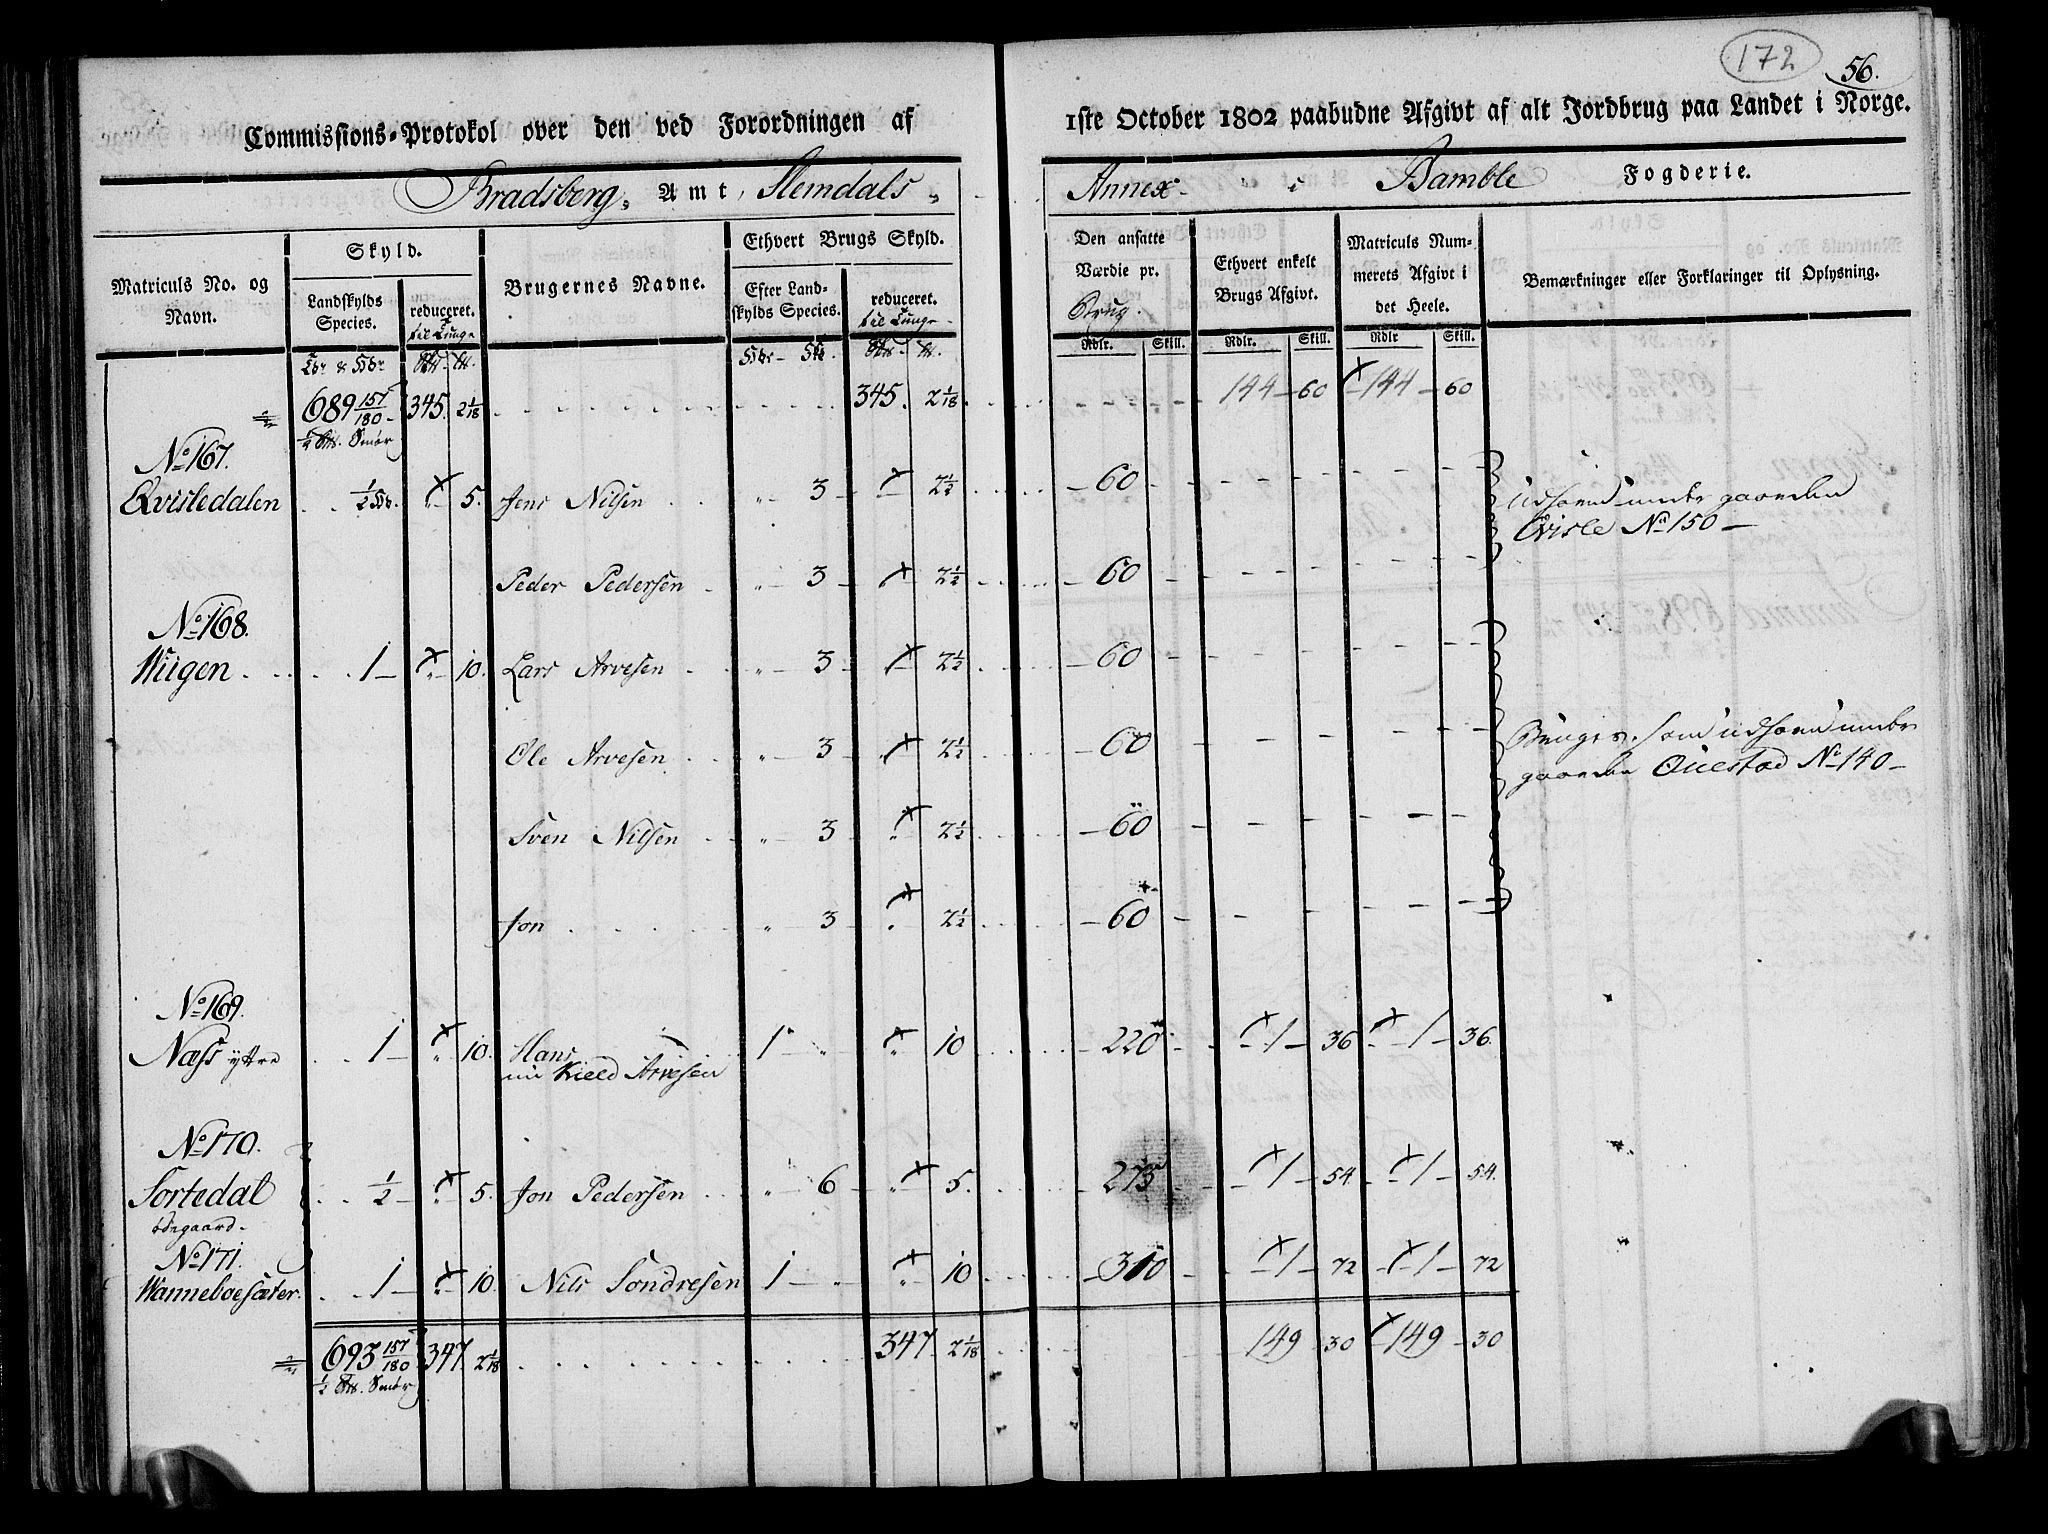 172
56.
Commissions-Protokol over den ved Forordningen af 1ste October 1802 paabudne Afgivt af alt Jordbrug paa Landet i Norge.
Bradsberg, Amt, Slemdals Annex i Bamble Fogderie.
Matriculs No. og Navn.
Skyld.
Landskylds Species.
reduceret. til Tunge
Brugernes Navne.
Ethvert Brugs Skyld.
Efter Landskylds Species.
reduceret. til Tunge
Den ansatte Værdie pr. Brug.
Ethvert enkelt Brugs Afgivt.
Matriculs Nummerets Afgivt i det Heele.
Bemærkninger eller Forklaringer til Oplysning.
Rdlr. Skill. Rdlr. Skill. Rdlr Skill.
689 157/180 345. 2 1/18 345. 2 1/18 144 60 144 60
1/2 Smør
No 167.
Qvisledalen 1/2 5. Jens Nilsen " 3 " 2 1/2 60
Udhavn under gaarden
Qvisle No 150
Peder Pedersen " 3 " 2 1/2 60
No 168.
Wiigen 1 " 10. Lars Arvesen " 3 " 2 1/2 60
Ole Arvesen " 3 " 2 1/2 60
Bruges som udhavn under
gaarden Øuestad No 140
Sven Nilsen " 3 " 2 1/2 60
Jon " 3 " 2 1/2 60
No 169.
Næss ytre 1 " 10. Hans 1 " " 10 220 1 36 1 36.
nu Kield Arvesen
No 170.
Sortedal 1/2 " 5. Jon Pedersen " 6 " 5. 275 1 54. 1 54.
ødegaard.
No 171.
Wanneboesæter. 1 " 10. Nils Sondresen 1 " " 10 310 1 72 1 72
693 157/180 347 2 1/18 347 2 1/18 149 30 149 30
1/2 Smør